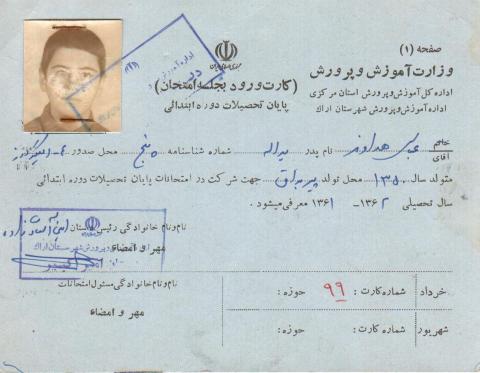 صفحه (۱)
وزارت آموزش و پرورش
(کارت ورود بجلسه امتحان)
اداره کل آموزش و پرورش استان مرکزی
پایان تحصیلات دوره ابتدائی
اداره آموزش و پرورش شهرستان اراک
خانم
آقای نام پدر یداله شماره شناسنامه پنج محل صدور
متولد سال ۱۳۵۰ محل تولد جهت شرکت در امتحانات پایان تحصیلات دوره ابتدائی
سال تحصیلی ۱۳۶۲ - ۱۳۶۱ معرفی میشود.
نام و نام خانوادگی رئیس دبستان
مهر و امضاء
نام و نام خانوادگی مسئول امتحانات
مهر و امضاء
خرداد شماره کارت: ۹۹ حوزه:
شهریور شماره کارت: حوزه: